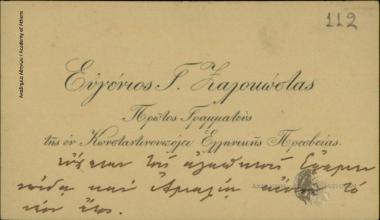 112
Ακαδημία Αθηνών / Academy of Athens
Εὐγένιος Γ. Ζαλοκώστας
Πρῶτος Γραμματεὺς
τῆς ἐν Κωνσταντινουπόλει Ἑλληνικῆς Πρεσβείας.
εὔχεται τοὺς ἀγαπητοὺς
καὶ Ἀμαλίη τὸ
νέον ἔτος.